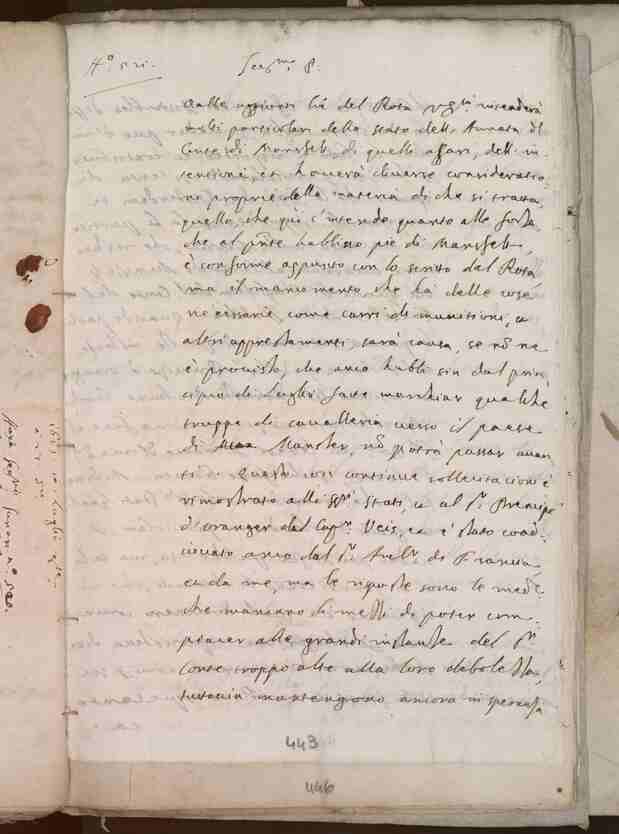 Nº 521.
Ser.mo P.
Dalle aggionte lre del Rota V. Ser.tà intenderà
molti particolari dello stato dell'Armata del
Conte di Mansfelt, di quelli affari, dell'in-
tentione, et haverà diverse consideratio-
ni proprie della materia di che si tratta,
quello, che qui s'intende quanto alle forze
che al pnte habbino piè di Mansfelt,
è conforme appunto con lo scritto dal Rota
ma il mancamento, che ha delle cose
necessarie, come carri di munitioni, et
altri apprestamenti sarà causa, se nō ne
è provisto, che anco habbi sin dal prin-
cipio di Luglio fatte marchiar qualche
truppe di cavalleria verso il paese
di Munster, nō potrà passar avan-
ti. Questo con continue sollecitationi è
rimostrato alli SS.ri Stati, et al S.r Principe
d'Oranges dal Cap.o Veis, et è stato coad-
iuvato anco dal S.r Amb.r di Francia,
et da me, ma le risposte sono le med.e
che mancano li mezzi di poter com-
piacer alle grandi instanze del S.r
Conte troppo alte alla loro debolezza,
tuttavia mantengono ancora in speranza
443
446